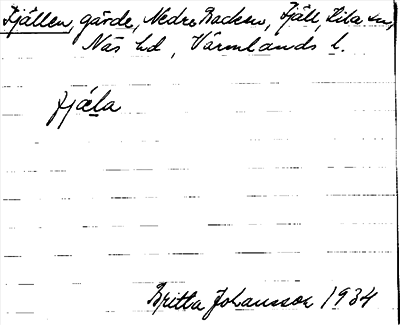 Fjällen, gärde, Nedre Backen, Fjäll, Lila sn,
Näs hd, Värmlands l.
fjäla
Britta Johansson 1934